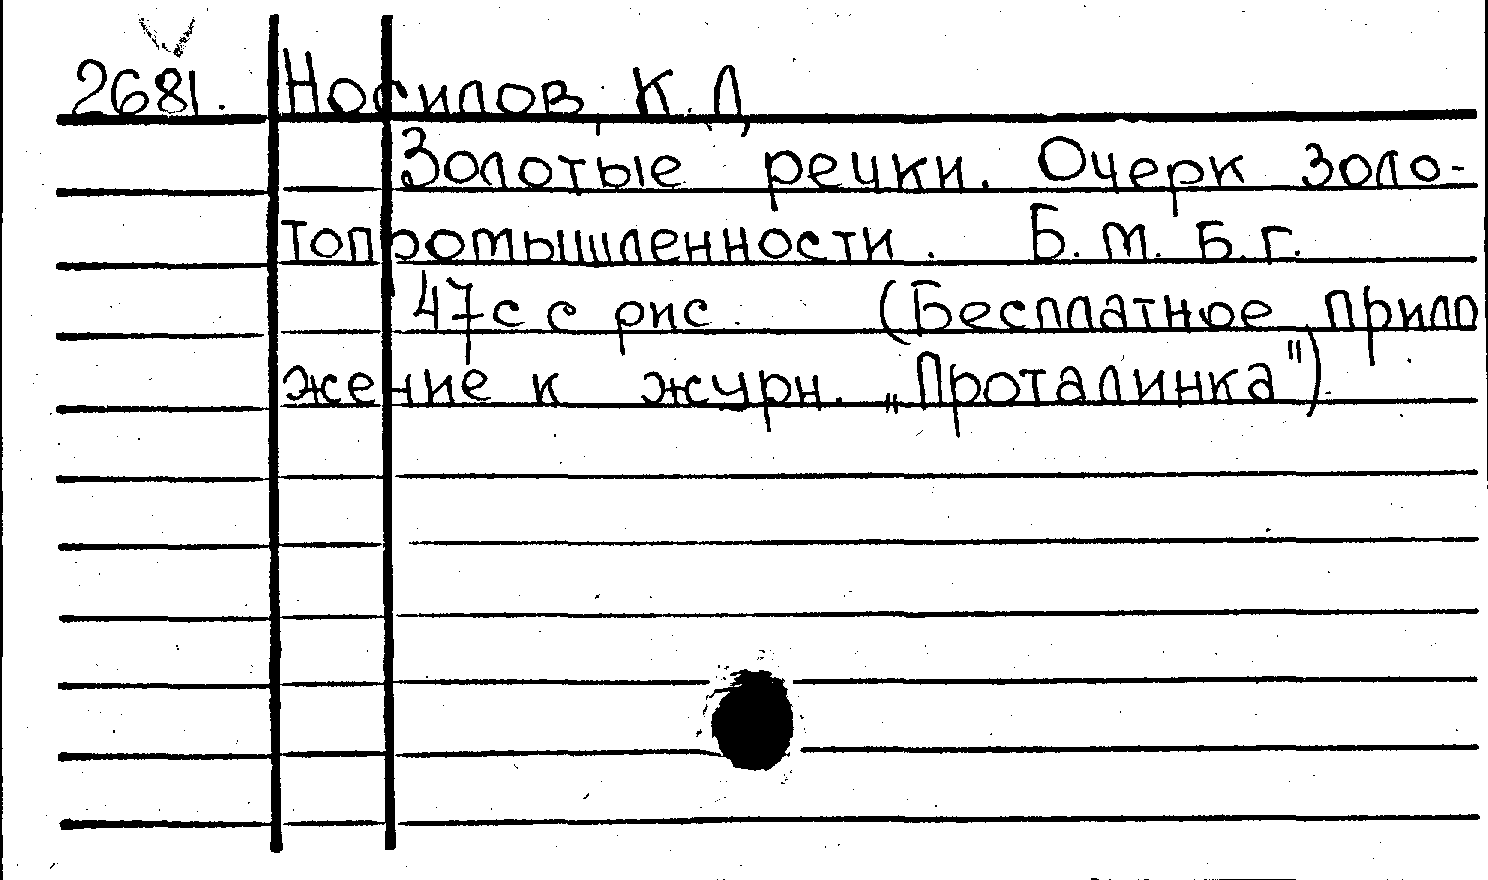 2681. Носилов, К. Д.
Золотые речки. Очерк золо-
топромышленности. Б. м. Б. г.
47 с с рис. (Бесплатное прило
жение к журн. „Проталинка")